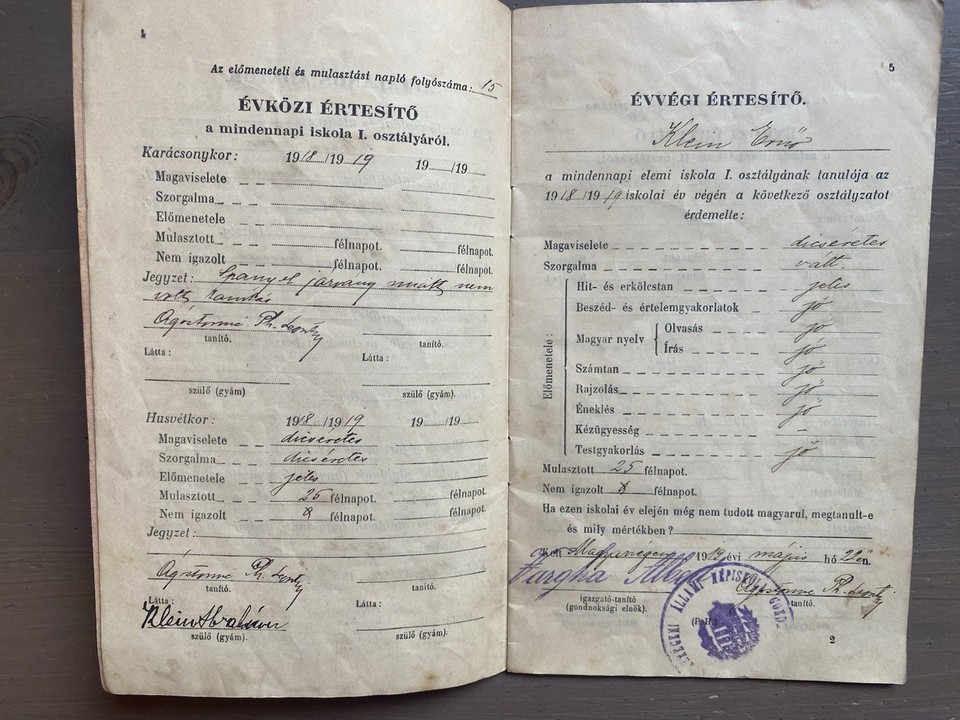 Az előmeneteli és mulasztási napló folyószáma: 15
ÉVKÖZI ÉRTESÍTŐ
a mindennapi iskola I. osztályáról.
Karácsonykor: 1918/1919 19 /19
Magaviselete
Szorgalma
Előmenetele
Mulasztott félnapot. félnapot.
Nem igazolt félnapot. félnapot.
Jegyzet: Spanyol járvány miatt nem
volt
Ágostonné
tanító. tanító.
Látta: Látta:
szülő (gyám) szülő (gyám).
Husvétkor: 1918/1919 19 /19
Magaviselete dicséretes
Szorgalma dicséretes
Előmenetele jeles
Mulasztott 26 félnapot. félnapot.
Nem igazolt félnapot. félnapot.
Jegyzet:
Ágostonné
tanító. tanitó.
Látta: Látta:
Klein Abrahám
szülő (gyám). szülő (gyám).
5
ÉVVÉGI ÉRTESÍTŐ.
Klein Ernő
a mindennapi elemi iskola I. osztályának tanulója az
1918/1919 iskolai év végén a következő osztályzatot
érdemelte:
Magaviselete dicséretes
Szorgalma volt
Előmenetele:
Hit- és erkölcstan jeles
Beszéd- és értelemgyakorlatok jó
Magyar nyelv Olvasás jó
Írás jó
Számtan jó
Rajzolás jó
Éneklés jó
Kézügyesség -
Testgyakorlás jó
Mulasztott 25 félnapot.
Nem igazolt félnapot.
Ha ezen iskolai év elején még nem tudott magyarul, megtanult-e
és mily mértékben?
Kelt 1919 évi május hó 22-én.
Ágostonné
igazgató-tanító tanító.
(gondnoksági elnök).
(P. H.)
ÁLLAMI NÉPISKOLA
2